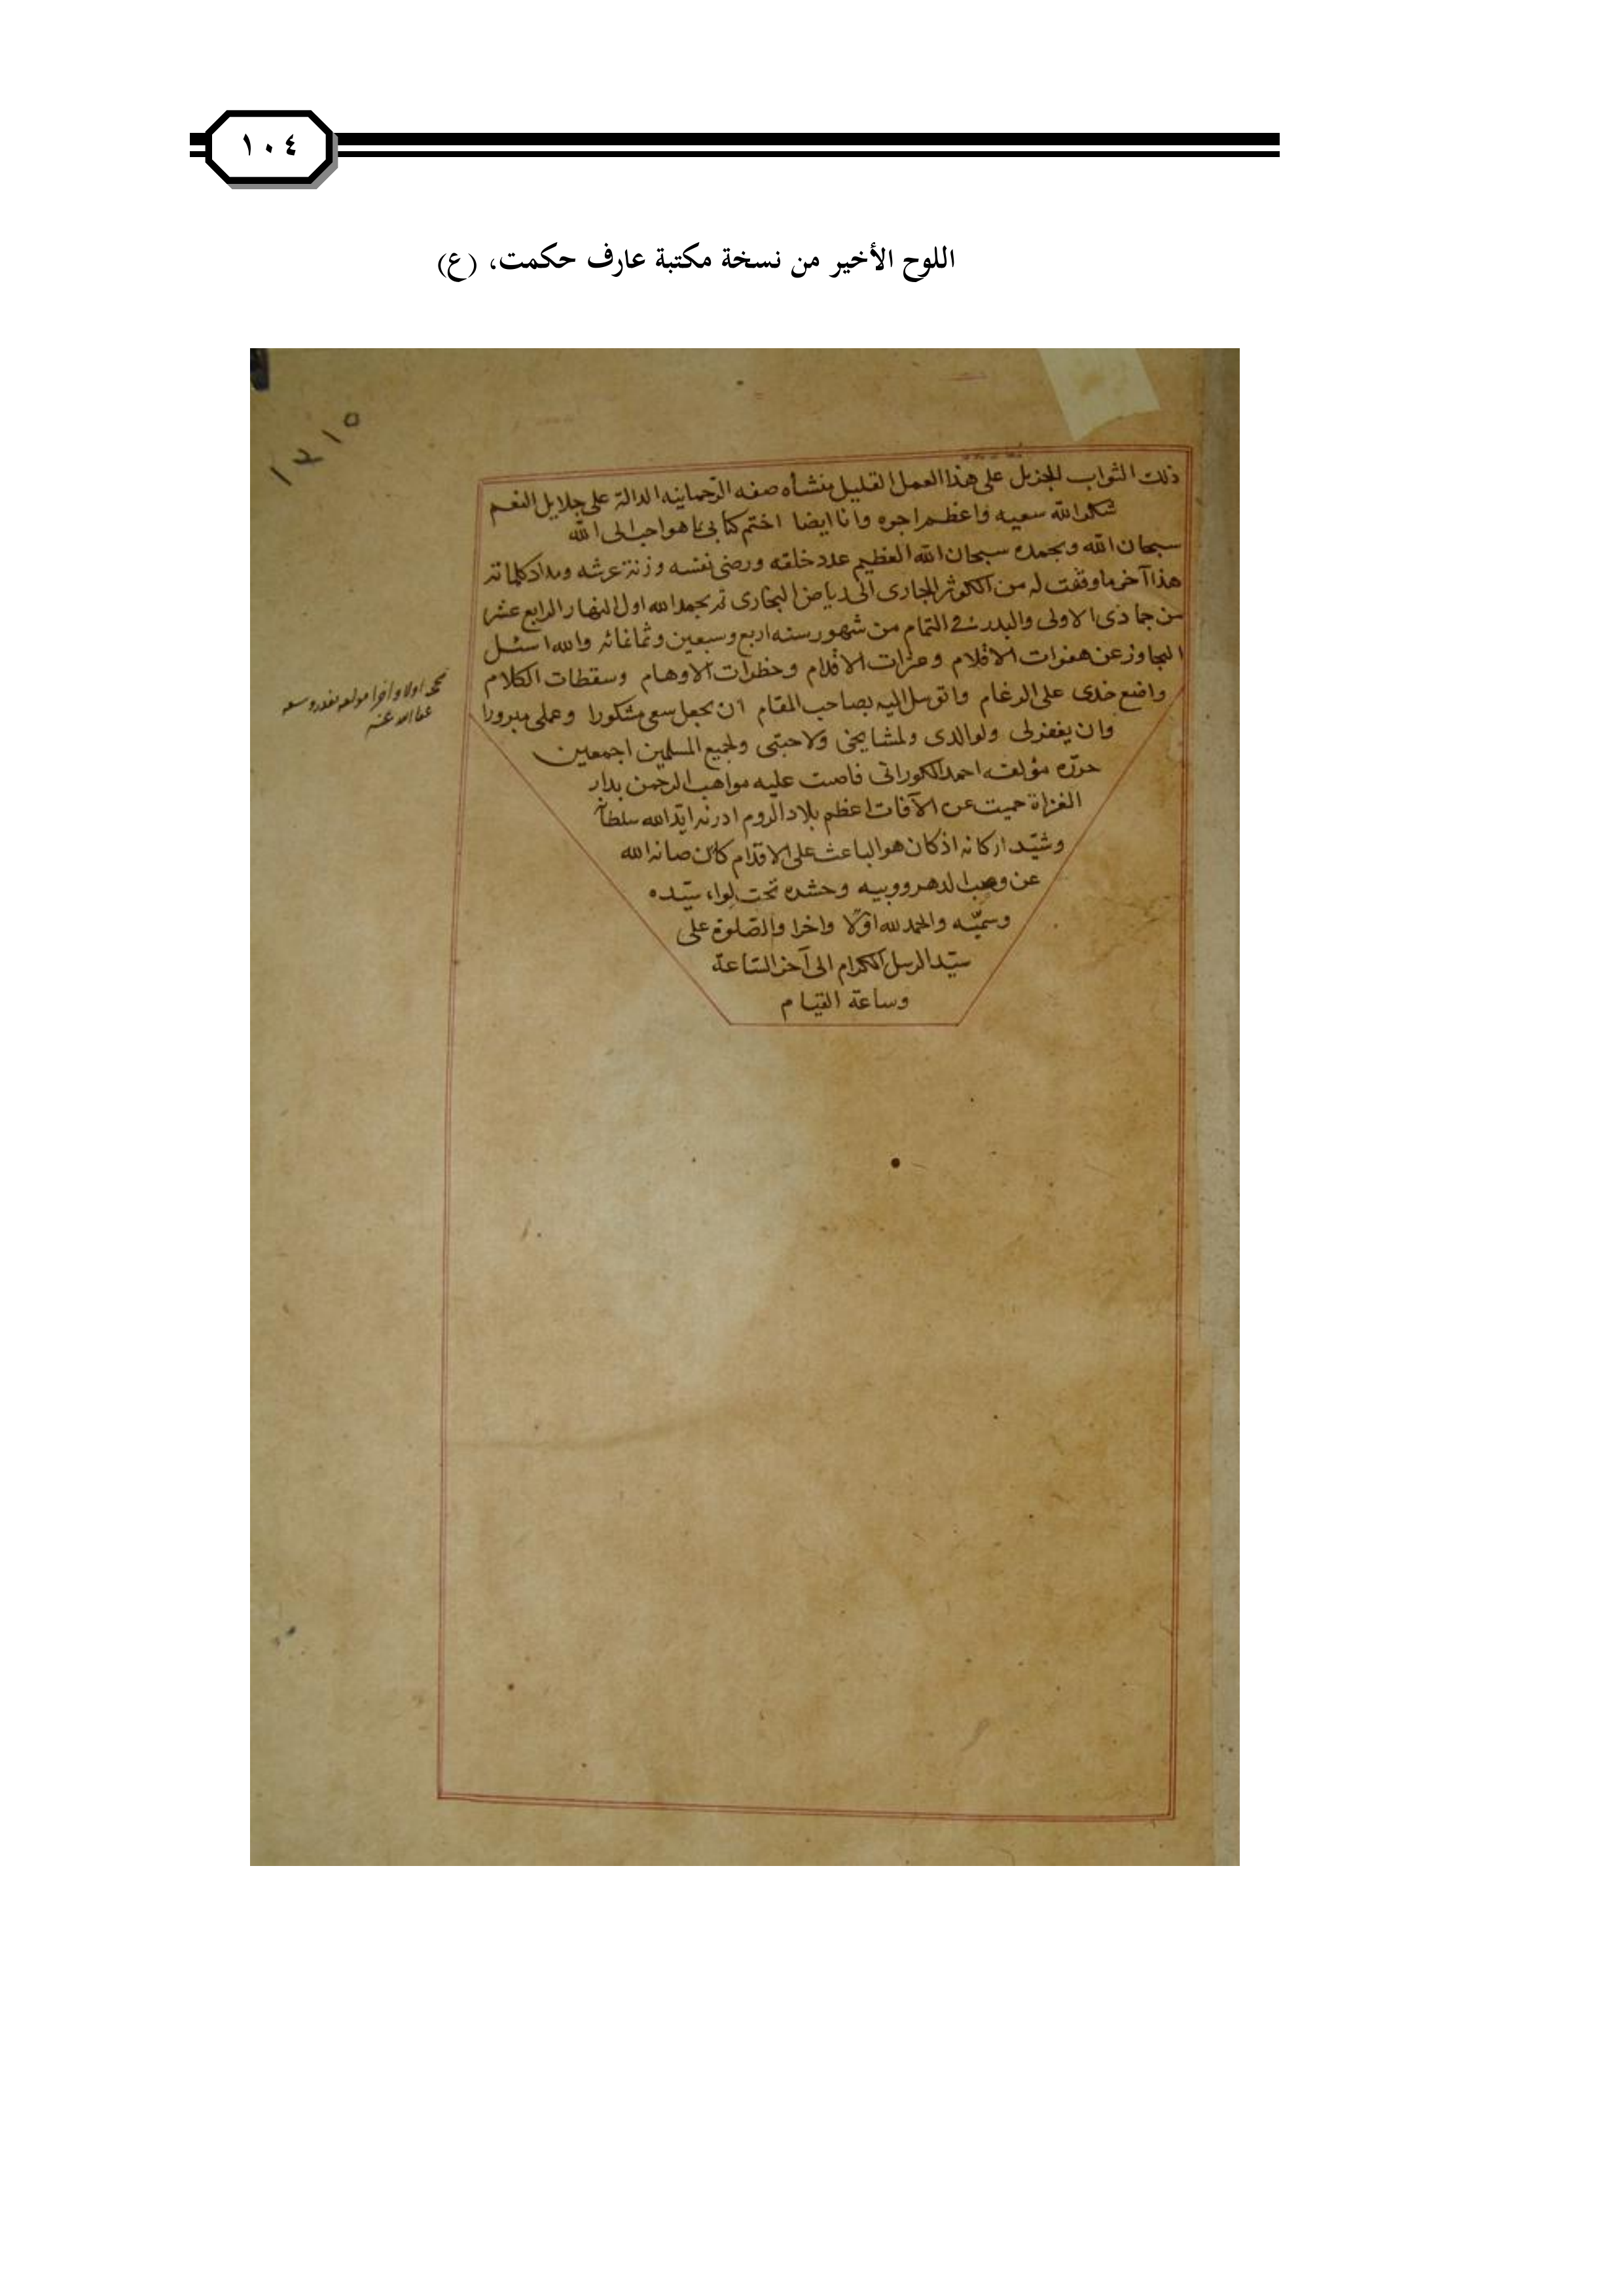 ١٠٤
اللوح الأخير من نسخة مكتبة عارف حكمت، (ع)
ذلك الثواب الجزيل على هذا العمل القليل منشأه صفه الرحمانيه الدالة على جلايل النعم
شكر الله سعيه واعظم اجره وانا ايضا اختم كتابى بما هو احب الى الله
سبحان الله وبحمده سبحان الله العظيم عدد خلقه ورضى نفسه وزنة عرشه ومداد كلماته
هذا آخر ما وفقت له من الكوثر الجارى الى رياض البخارى تم بحمد الله اول النهار الرابع عشر
من جمادى الاولى والبدر فى التمام من شهور سنه اربع وسبعين وثمانمائه والله اسئل
التجاوز عن هفوات الاقلام وعثرات الاقدام وخطرات الاوهام وسقطات الكلام
واضع خدى على الرغام واتوسل اليه بصاحب المقام ان يجعل سعى مشكورا وعملى مبرورا
وان يغفر لى ولوالدى ولمشايخى ولاحبتى ولجميع المسلمين اجمعين
حرّره مؤلفه احمد الكورانى فاضت عليه مواهب الرحمن بدار
الغزاة حميت عن الآفات اعظم بلاد الروم ادرنه ايّد الله سلطانه
وشيّد اركانه اذ كان هو الباعث على الاقدام كان صانه الله
عن الدهر وحشره تحت لواء سيّده
وسميّه والحمد لله اوّلا واخرا والصّلوة على
سيّد الرسل الكرام الى آخر السّاعة
وساعة القيام
١٢١٥
اولا واخرا
عفا الله عنه